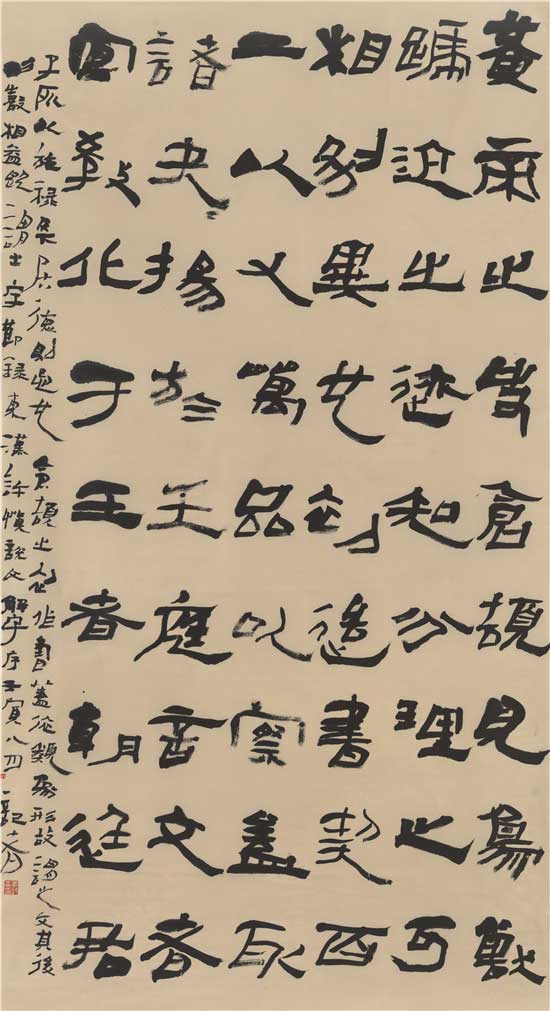 黃帝之史倉頡見鳥獸
蹏迒之迹知分理之可
相別異也初造書契百
工以乂萬品以察蓋取
諸夬揚於王庭言文者
宣教化于王者朝廷君
子所以施祿及下居德則忌也倉頡之初作書蓋依類象形故謂之文其後
形聲相益即謂之字節錄東漢許慎說文解字序壬寅八月